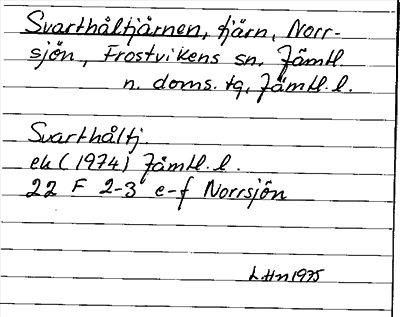 Svarthåltjärnen, tjärn, Norr-
sjön, Frostvikens sn, Jämtl.
n. doms. tg, Jämtl. l.
Svarthåltj.
ek (1974) Jämtl. l.
22 F 2-3 e-f Norrsjön
1975